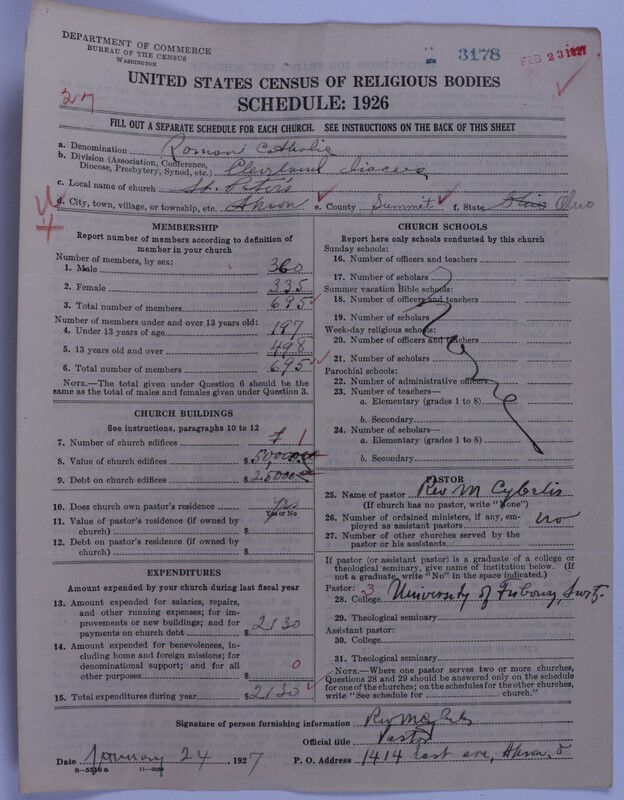 DEPARTMENT OF COMMERCE
BUREAU OF THE CENSUS
WASHINGTON
3178
FEB 23 1927
UNITED STATES CENSUS OF RELIGIOUS BODIES
SCHEDULE: 1926
27
FILL OUT A SEPARATE SCHEDULE FOR EACH CHURCH. SEE INSTRUCTIONS ON THE BACK OF THIS SHEET
a. Denomination Roman Catholic
b. Division (Association, Conference, Diocese, Presbytery, Synod, etc.) Cleveland
c. Local name of church St. Peter's
d. City, town, village, or township, etc. Akron e. County Summit f. State Ohio
MEMBERSHIP
Report number of members according to definition of member in your church
Number of members, by sex:
1. Male 360
2. Female 335
3. Total number of members 695
Number of members under and over 13 years old:
4. Under 13 years of age 197
5. 13 years old and over 498
6. Total number of members 695
NOTE.—The total given under Question 6 should be the same as the total of males and females given under Question 3.
CHURCH BUILDINGS
See instructions, paragraphs 10 to 12
7. Number of church edifices 1
8. Value of church edifices $ 50,000
9. Debt on church edifices $ 25000
10. Does church own pastor's residence yes
Yes or No
11. Value of pastor's residence (if owned by church) $
12. Debt on pastor's residence (if owned by church) $
EXPENDITURES
Amount expended by your church during last fiscal year
13. Amount expended for salaries, repairs, and other running expenses; for improvements or new buildings; and for payments on church debt $ 2130
14. Amount expended for benevolences, including home and foreign missions; for denominational support; and for all other purposes $ 0
15. Total expenditures during year $ 2130
CHURCH SCHOOLS
Report here only schools conducted by this church
Sunday schools:
16. Number of officers and teachers
17. Number of scholars
Summer vacation Bible schools:
18. Number of officers and teachers
19. Number of scholars
Week-day religious schools:
20. Number of officers and teachers
21. Number of scholars
Parochial schools:
22. Number of administrative officers
23. Number of teachers—
a. Elementary (grades 1 to 8)
b. Secondary
24. Number of scholars—
a. Elementary (grades 1 to 8)
b. Secondary
None
PASTOR
25. Name of pastor Rev M Cybulis
(If church has no pastor, write "None")
26. Number of ordained ministers, if any, employed as assistant pastors no
27. Number of other churches served by the pastor or his assistants
If pastor (or assistant pastor) is a graduate of a college or theological seminary, give name of institution below. (If not a graduate, write "No" in the space indicated.)
Pastor: 3
28. College University of Fribourg, Switz.
29. Theological seminary
Assistant pastor:
30. College
31. Theological seminary
NOTE.—Where one pastor serves two or more churches, Questions 28 and 29 should be answered only on the schedule for one of the churches; on the schedules for the other churches, write "See schedule for church."
Signature of person furnishing information Rev M Cybulis
Official title Pastor
Date January 24, 1927 P. O. Address 1414 East ave, Akron, O
11—9059